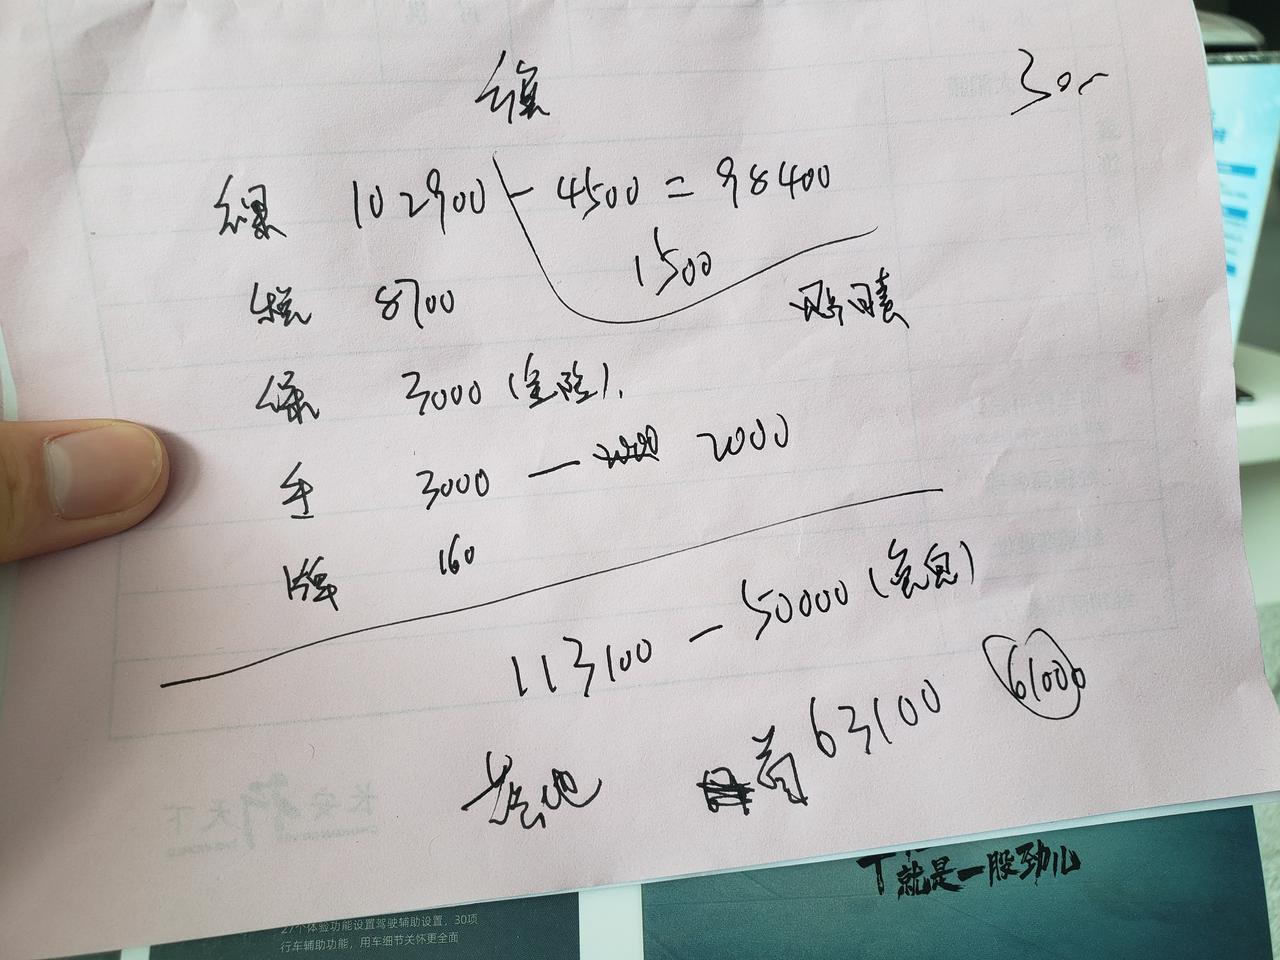 300
裸 102900 - 4500 = 98400
1500
税 8700
保 3000 (全险).
手 3000 — 2000
牌 160
113100 - 50000 (免息)
首 63100 61000
长安行天下
就是一股劲儿
27个体验功能设置驾驶辅助设置，30项
行车辅助功能，用车细节关怀更全面